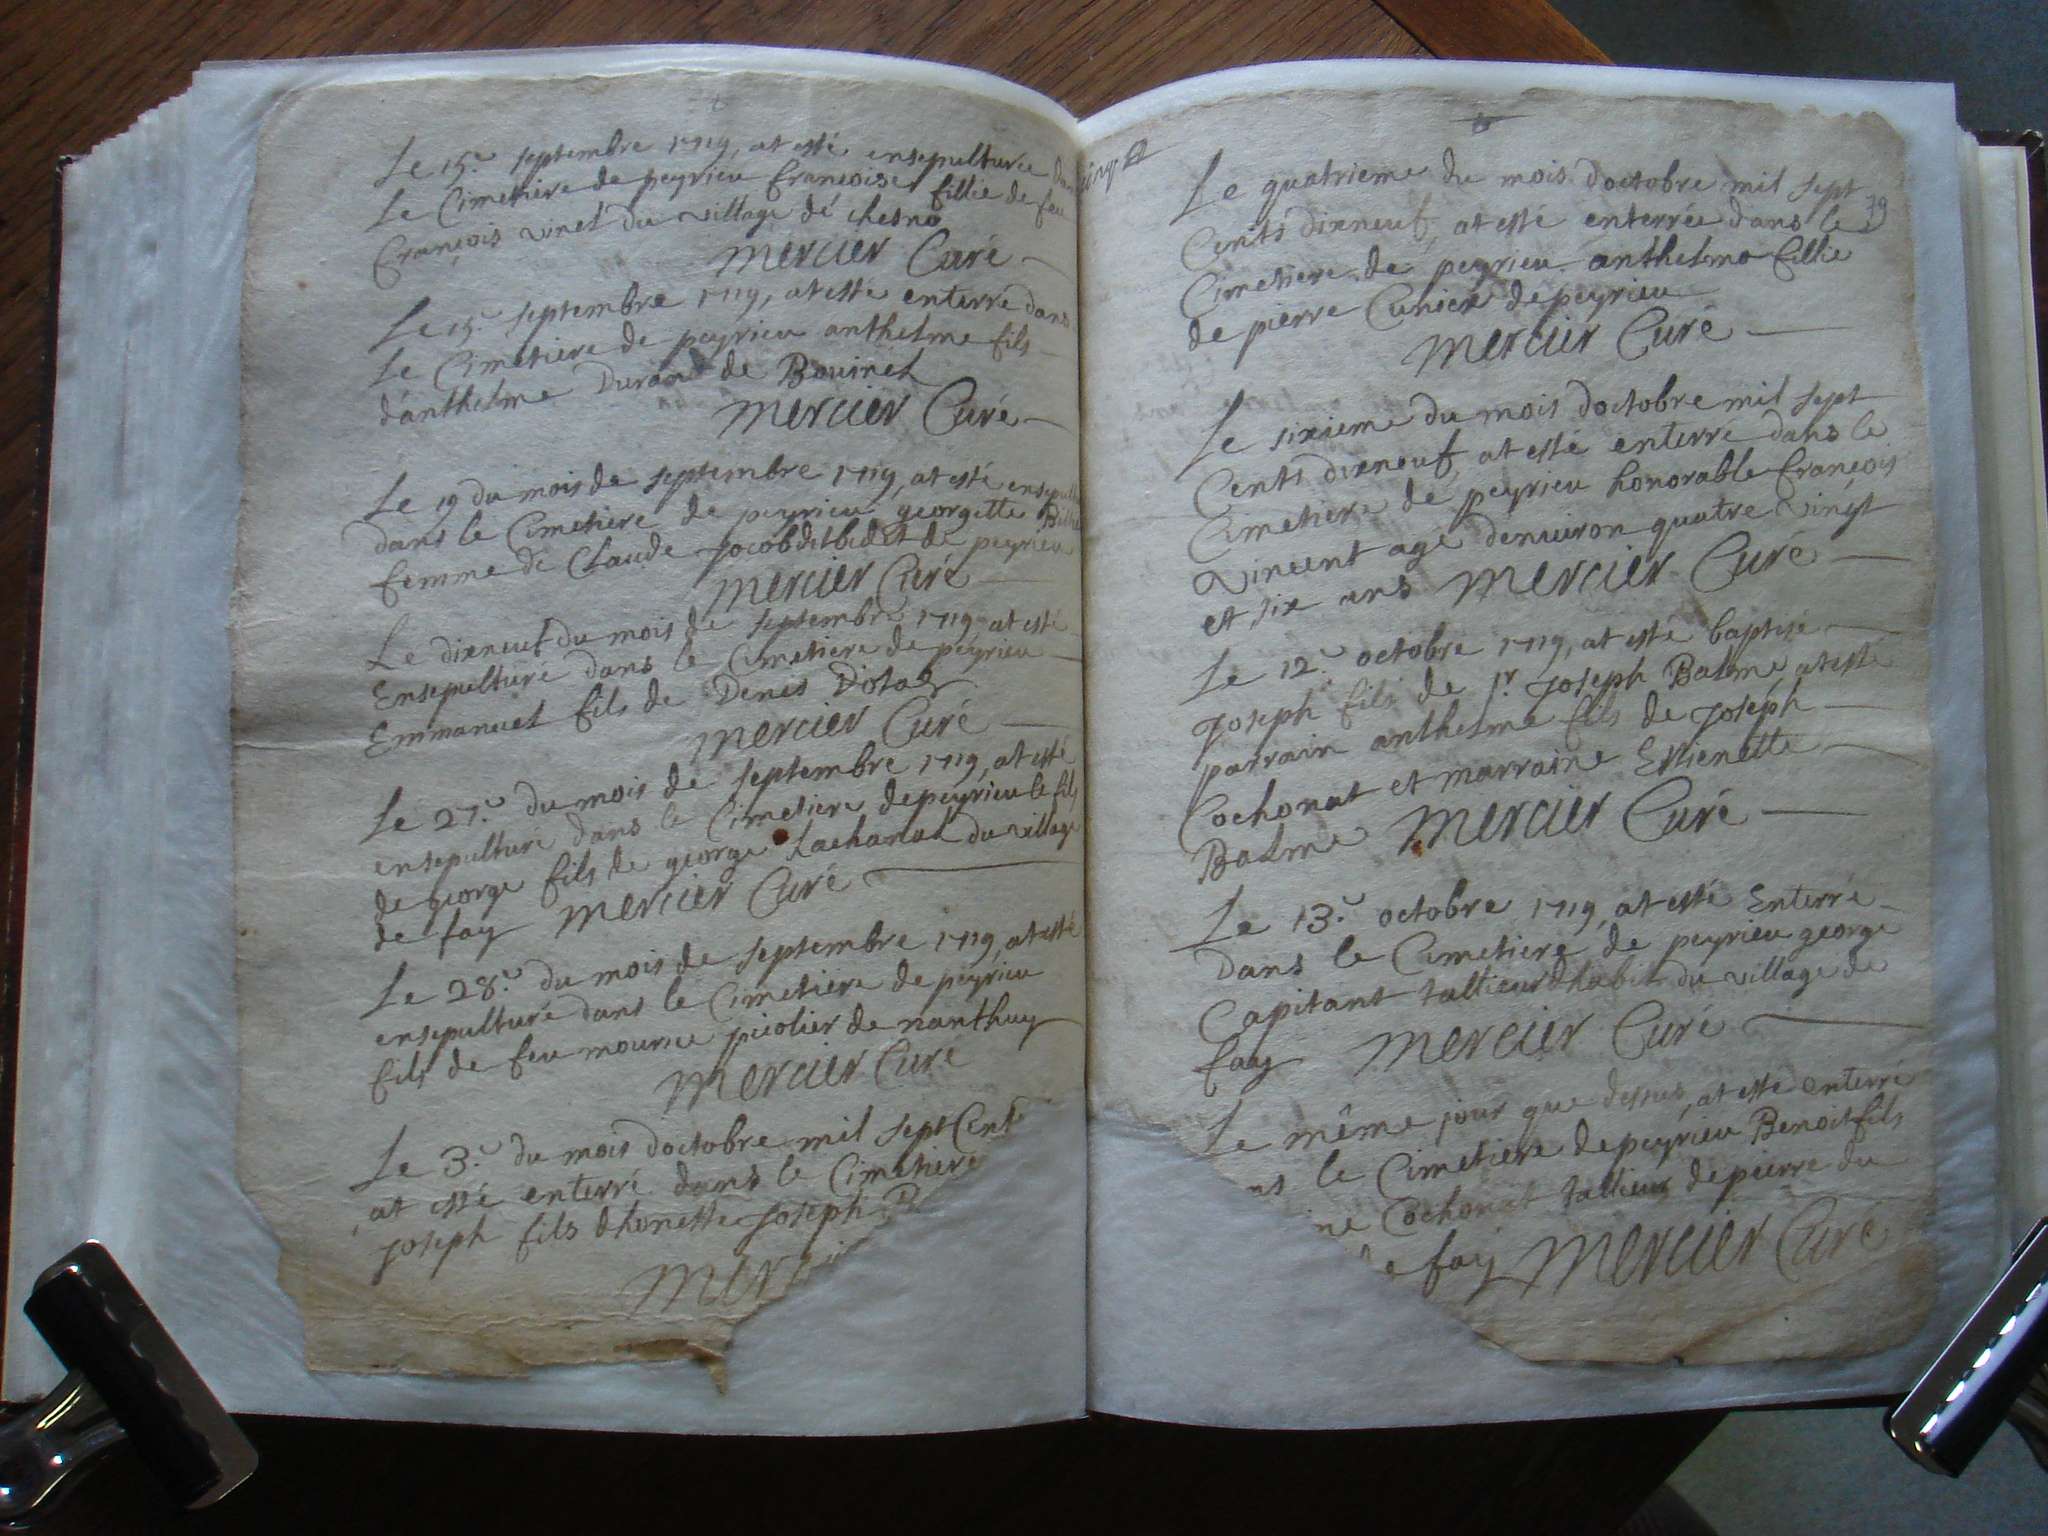 Le 15.e septembre 1719, at esté ensepulturée dans
Le Cimetiere de peyrieu francoise fillie de feu
francois vinet du village de chesno
mercier Curé
Le 15.e septembre 1719, at esté enterré dans
Le Cimetiere de peyrieu anthelme fils
d'anthelme Durand de Bovinel
mercier Curé
Le 19 du mois de septembre 1719, at esté
dans le Cimetiere de peyrieu georgette
femme de Claude Jocob dit bidet de peyrieu
mercier Curé
Le dixneuf du mois de septembre 1719 at esté
Ensepulturé dans le Cimetiere de peyrieu
Emmanuel fils de Denis
mercier Curé
Le 27.e du mois de septembre 1719, at esté
ensepulturé dans le Cimetiere de peyrieu le fils
de george fils de george Lachanal du village
de fay mercier Curé
Le 28.e du mois de septembre 1719, at esté
ensepulturé dans le Cimetiere de peyrieu
fils de feu mourice picolier de nanthuy
mercier Curé
Le 3.e du mois d'octobre mil sept Cent
at esté enterré dans le Cimetiere
joseph fils dhoneste Joseph
79
Le quatrieme du mois d'octobre mil sept
Cents dixneuf, at esté enterrée dans le
Cimetiere de peyrieu anthelmo fillie
de pierre Cunier de peyrieu
mercier Curé
Le sixieme du mois d'octobre mil sept
Cents dixneuf, at esté enterré dans le
Cimetiere de peyrieu honorable francois
vincent age denuiron quatre vingt
et six ans mercier Curé
Le 12.e octobre 1719, at esté baptisé
Joseph fils de sr. Joseph Balme, at esté
parrain anthelme fils de Joseph
Cochonat et marraine Estienette
Balme mercier Curé
Le 13.e octobre 1719, at esté Enterré
Dans le Cimetiere de peyrieu george
Capitant tallieur dhabit du village de
fay mercier Curé
Le même jour que dessus, at esté enterré
le Cimetiere de peyrieu Benoit fils
Cochonat tallieur de pierre du
fay mercier Curé